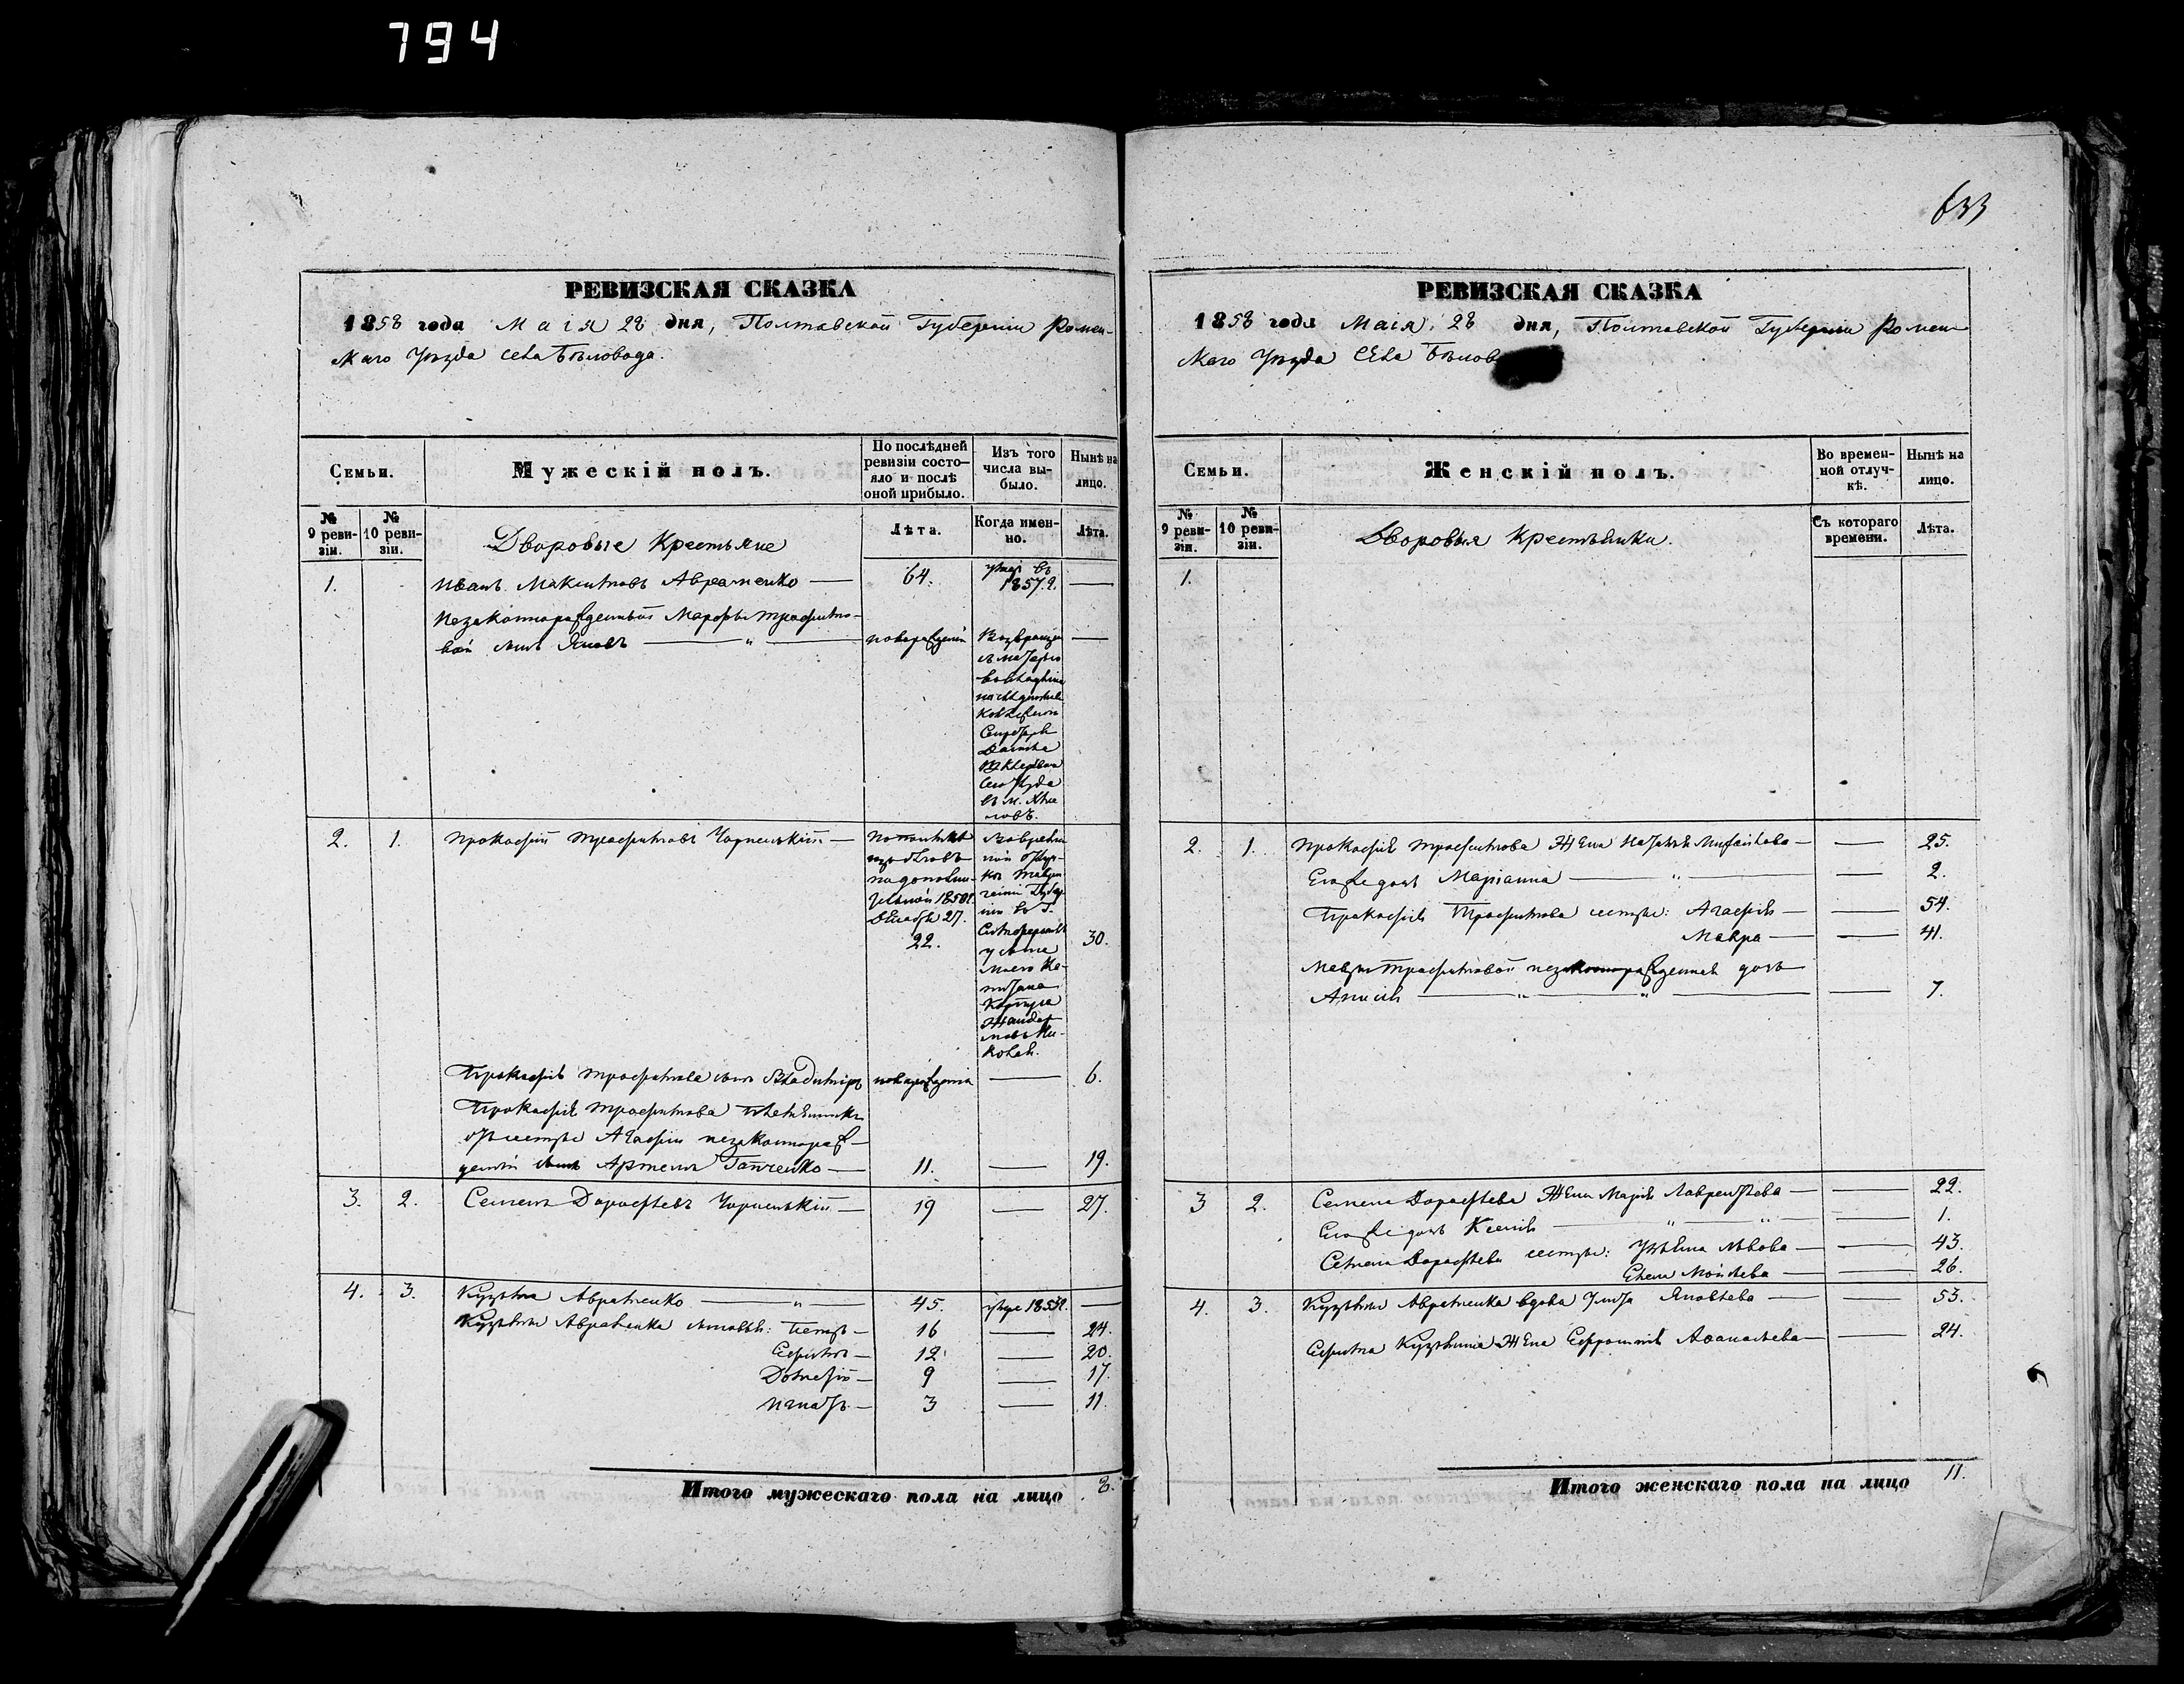 794
633
РЕВИЗСКАЯ СКАЗКА
1858 года Маія 28 дня, Полтавской Губерніи Ромен-
скаго Уѣзда села Бѣловода.
Семьи.
Мужескій полъ.
По послѣдней ревизіи состо-
яло и послѣ оной прибыло.
Изъ того числа вы-
было.
Нынѣ на лицо.
№ 9 реви-
зіи.
№ 10 реви-
зіи.
Дворовые Крестьяне
Лѣта.
Когда имен-
но.
Лѣта.
1.
Иванъ Максимовъ Авраменко
64.
умеръ въ 1857 г.
Незаконнорожденный Марфы Трофимо-
вой сынъ Яковъ
новорожденый
2. 1.
Прокофій Трофимовъ Чорненькій
22.
30.
Прокофія Трофимова сынъ Владимиръ
новорожденый
6.
Прокофія Трофимова племянникъ
отъ сестры Агафіи незаконнорож-
денный сынъ Артемъ Гапченко
11.
19.
3. 2.
Семенъ Дорофеевъ Чорненькій
19
27.
4. 3.
Кузьма Авраменко
45.
умеръ 1853 г.
Кузьмы Авраменка сыновья: Петръ
16
24.
Ефимъ
12
20.
Дометій
9
17.
Игнатъ
3
11.
Итого мужескаго пола на лицо 8.
РЕВИЗСКАЯ СКАЗКА
1858 года Маія 28 дня, Полтавской Губерніи Ромен-
скаго Уѣзда села Бѣлов
Семьи.
Женскій полъ.
Во времен-
ной отлуч-
кѣ.
Нынѣ на лицо.
№ 9 реви-
зіи.
№ 10 реви-
зіи.
Дворовыя Крестьянки.
Съ котораго времени.
Лѣта.
1.
2. 1.
Прокофія Трофимова жена Наталья Михайлова
25.
Его же дочь Маріанна
2.
Прокофія Трофимова сестры: Агафія
54.
Мавра
41.
Мавры Трофимовой незаконнорожденная дочь
Анисія
7.
3 2.
Семена Дорофеева жена Марія Лаврентьева
22.
Его же дочь Ксенія
1.
Семена Дорофеева сестры: Ульяна Львова
43.
Елена Моисеева
26.
4. 3.
Кузьмы Авраменка вдова Улита Яковлева
53.
Ефима Кузьмина жена Ефросинія Аѳанасьева
24.
Итого женскаго пола на лицо 11.